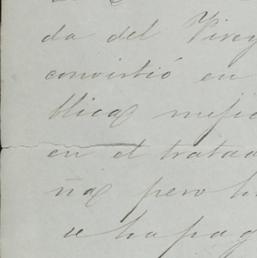 da del Virey
convirtió en
blica mejic
en el tratad
ña pero h
se ha pag